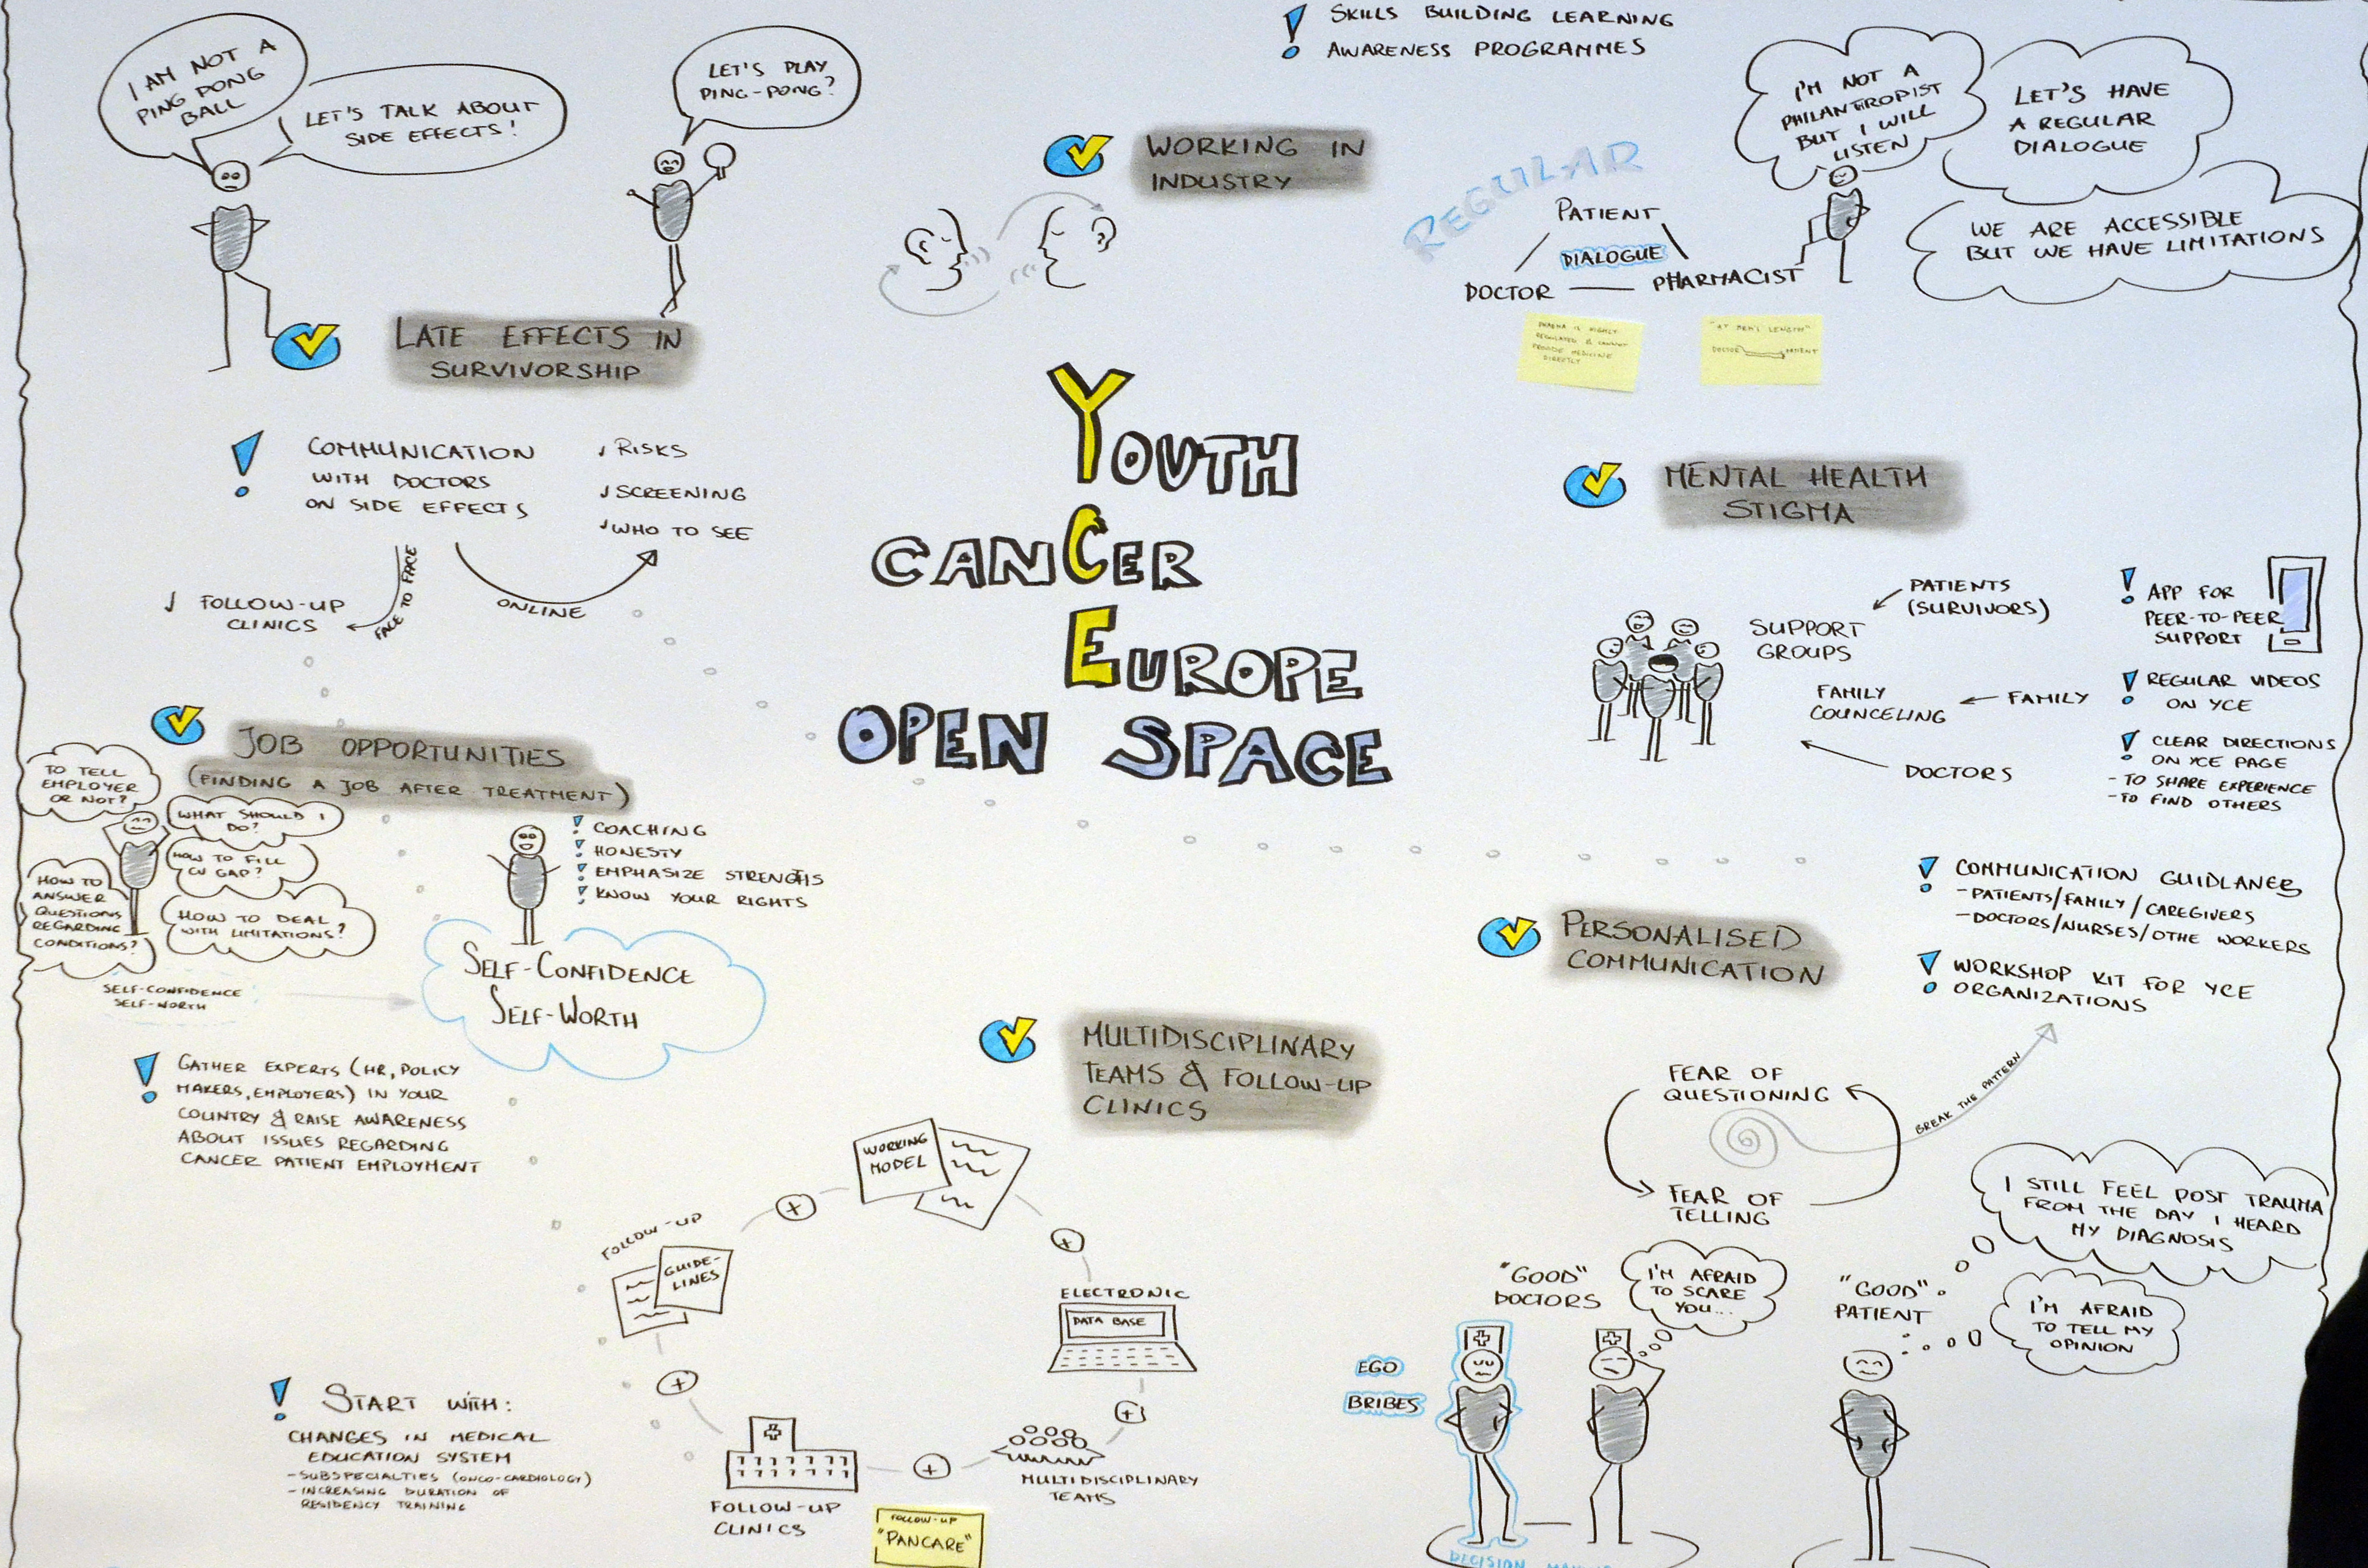 I AM NOT A
PING PONG
BALL
LET'S TALK ABOUT
SIDE EFFECTS!
LET'S PLAY
PING-PONG?
LATE EFFECTS IN
SURVIVORSHIP
COMMUNICATION
WITH DOCTORS
ON SIDE EFFECTS
RISKS
SCREENING
WHO TO SEE
FACE TO FACE
ONLINE
FOLLOW-UP
CLINICS
! SKILLS BUILDING LEARNING
AWARENESS PROGRAMMES
WORKING IN
INDUSTRY
REGULAR
PATIENT
DIALOGUE
DOCTOR
PHARMACIST
I'M NOT A
PHILANTROPIST
BUT I WILL
LISTEN
LET'S HAVE
A REGULAR
DIALOGUE
WE ARE ACCESSIBLE
BUT WE HAVE LIMITATIONS
PHARMA IS HIGHLY
REGULATED & CANNOT
PROVIDE MEDICINE
DIRECTLY
DOCTOR
PATIENT
YOUTH
CANCER
EUROPE
OPEN SPACE
MENTAL HEALTH
STIGMA
SUPPORT
GROUPS
PATIENTS
(SURVIVORS)
FAMILY
COUNCELING
FAMILY
DOCTORS
! APP FOR
PEER-TO-PEER
SUPPORT
! REGULAR VIDEOS
ON YCE
! CLEAR DIRECTIONS
ON YCE PAGE
- TO SHARE EXPERIENCE
- TO FIND OTHERS
JOB OPPORTUNITIES
(FINDING A JOB AFTER TREATMENT)
TO TELL
EMPLOYER
OR NOT?
WHAT SHOULD I
DO?
HOW TO FILL
CV GAP?
HOW TO
ANSWER
QUESTIONS
REGARDING
CONDITIONS?
HOW TO DEAL
WITH LIMITATIONS?
SELF-CONFIDENCE
SELF-WORTH
! COACHING
! HONESTY
! EMPHASIZE STRENGTHS
! KNOW YOUR RIGHTS
SELF-CONFIDENCE
SELF-WORTH
! GATHER EXPERTS (HR, POLICY
MAKERS, EMPLOYERS) IN YOUR
COUNTRY & RAISE AWARENESS
ABOUT ISSUES REGARDING
CANCER PATIENT EMPLOYMENT
MULTIDISCIPLINARY
TEAMS & FOLLOW-UP
CLINICS
WORKING
MODEL
FOLLOW-UP
GUIDE-
LINES
ELECTRONIC
DATA BASE
MULTIDISCIPLINARY
TEAMS
FOLLOW-UP
CLINICS
FOLLOW-UP
"PANCARE"
! START WITH:
CHANGES IN MEDICAL
EDUCATION SYSTEM
- SUBSPECIALTIES (ONCO-CARDIOLOGY)
- INCREASING DURATION OF
RESIDENCY TRAINING
PERSONALISED
COMMUNICATION
! COMMUNICATION GUIDLANES
- PATIENTS/FAMILY/CAREGIVERS
- DOCTORS/NURSES/OTHE WORKERS
! WORKSHOP KIT FOR YCE
ORGANIZATIONS
FEAR OF
QUESTIONING
FEAR OF
TELLING
BREAK THE PATTERN
I STILL FEEL POST TRAUMA
FROM THE DAY I HEARD
MY DIAGNOSIS
"GOOD"
DOCTORS
I'M AFRAID
TO SCARE
YOU...
"GOOD"
PATIENT
I'M AFRAID
TO TELL MY
OPINION
EGO
BRIBES
DECISION